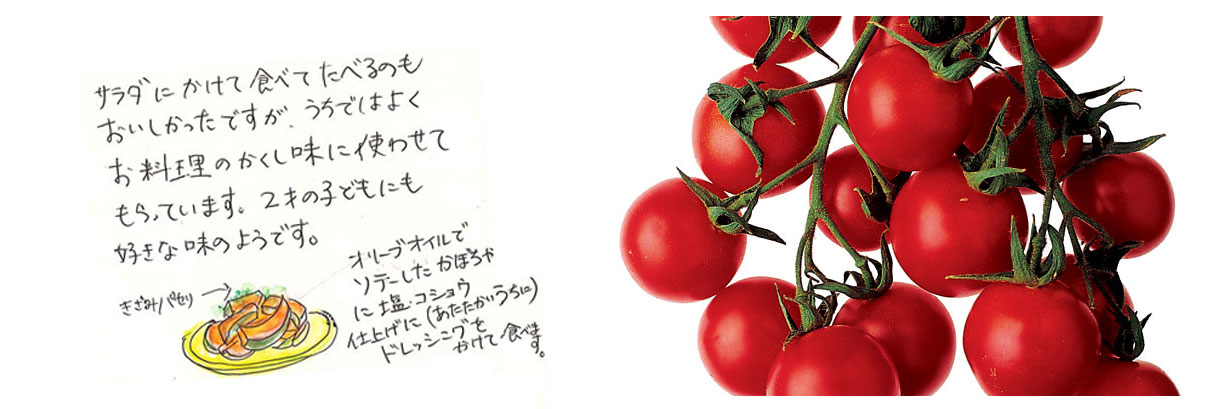 サラダにかけて食べてたべるのも
おいしかったですが、うちではよく
お料理のかくし味に使わせて
もらっています。2才の子どもにも
好きな味のようです。
きざみパセリ
オリーブオイルで
ソテーしたかぼちゃ
に塩・コショウ
仕上げに(あたたかいうちに)
ドレッシングを
かけて食べます。